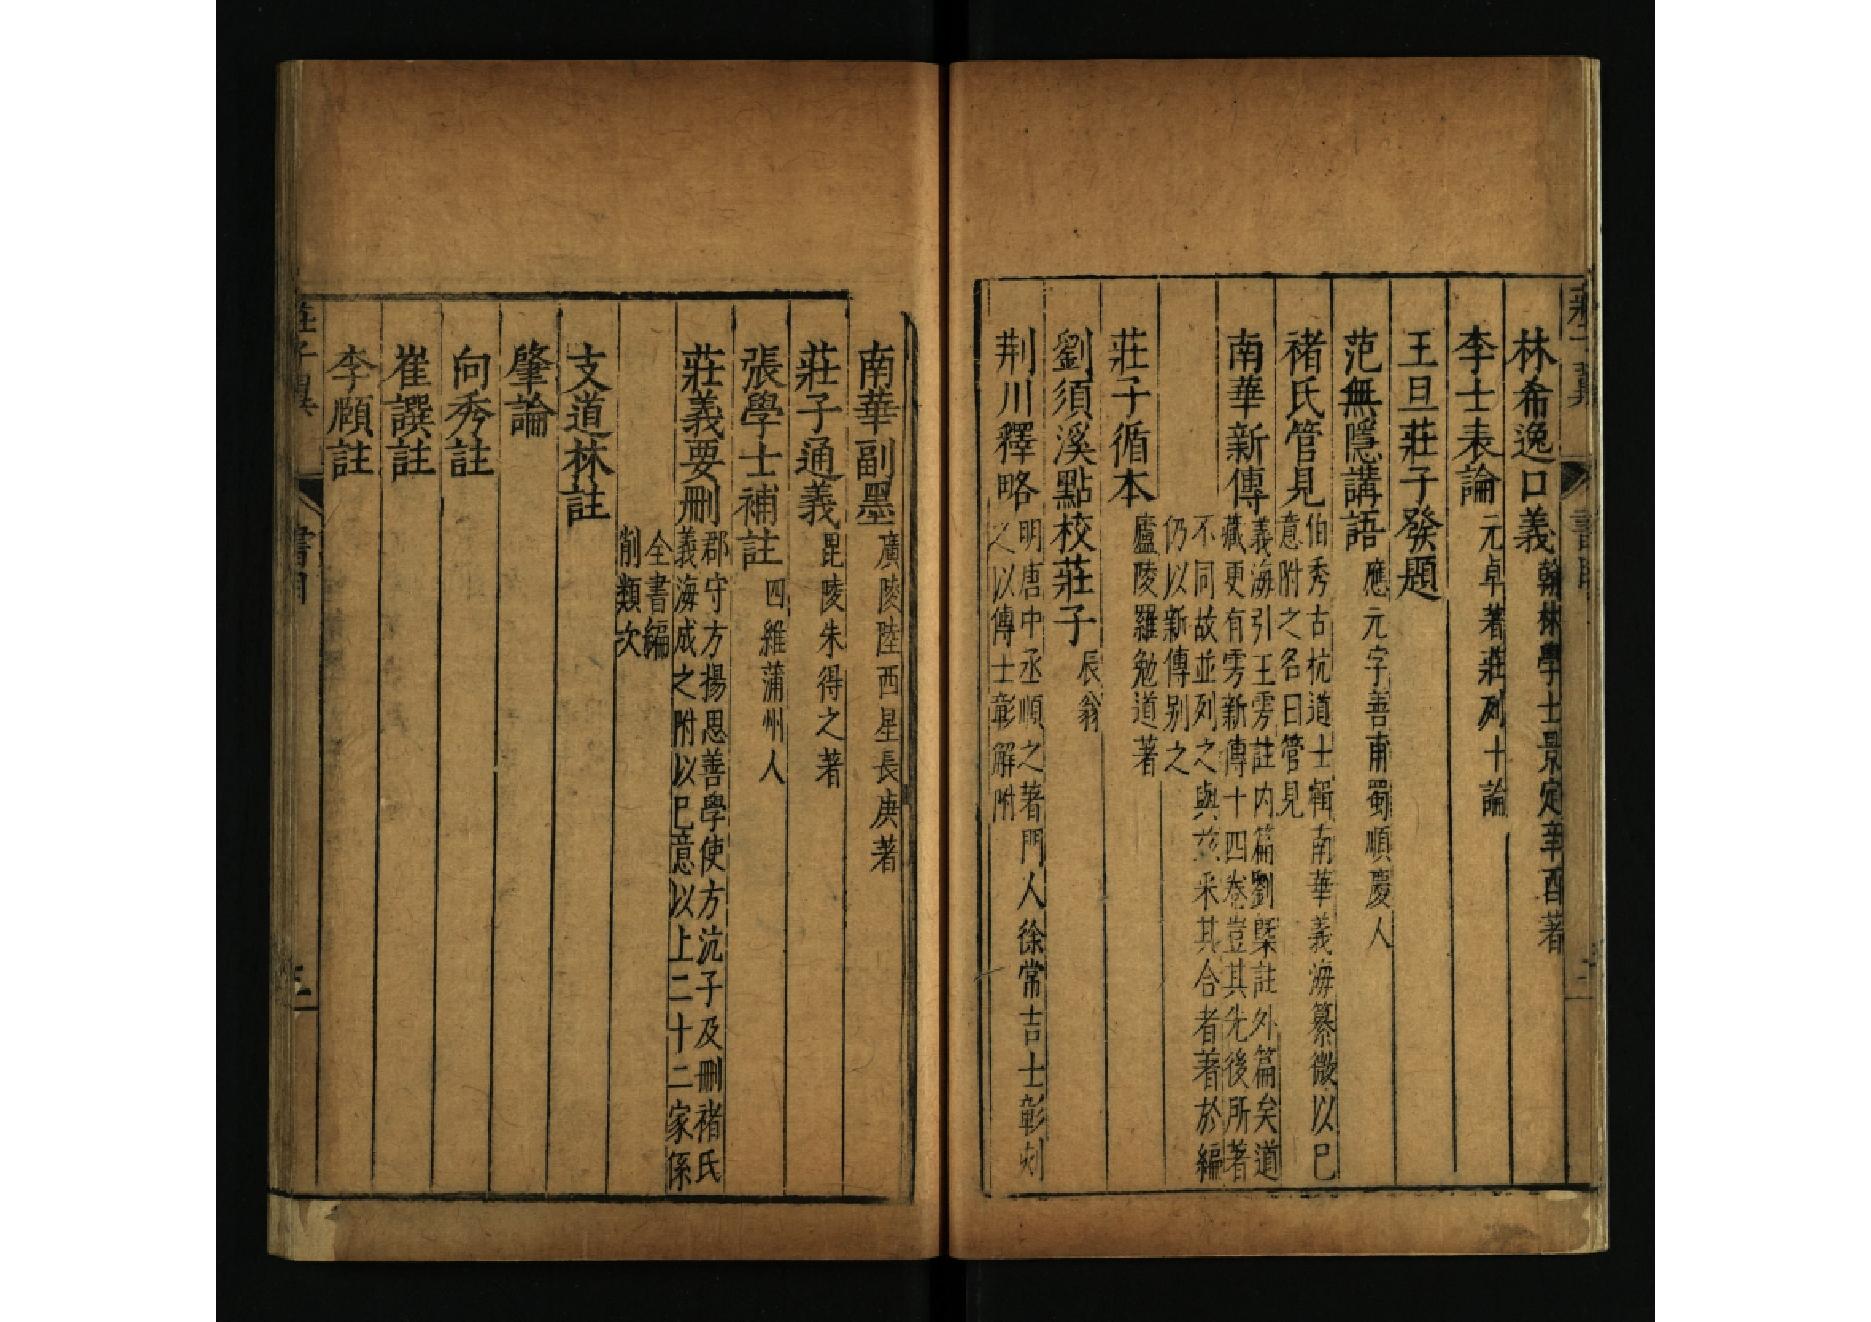 林希逸口義翰林學士景定辛酉著
李士表論元卓著莊列十論
王旦莊子發題
范無隱講語應元字善甫蜀順慶人
褚氏管見伯秀古杭道士輯南華義海纂微以巳
意附之名曰管見
南華新傳義海引王雱註内篇劉槩註外篇矣道
藏更有雱新傳十四卷豈其先後所著
不同故並列之與茲采其合者著於編
仍以新傳别之
莊子循本廬陵羅勉道著
劉須溪點校莊子辰翁
荆川釋略明唐中丞順之著門人徐常吉士彰刻
之以傳士彰解附
莊子翼
書目
南華副墨廣陵陸西星長庚著
莊子通義毘陵朱得之著
張學士補註四維蒲州人
莊義要刪郡守方揚思善學使方沆子及刪褚氏
義海成之附以巳意以上二十二家係
全書編
削類次
支道林註
肇論
向秀註
崔譔註
李頤註
莊子翼
書目
三